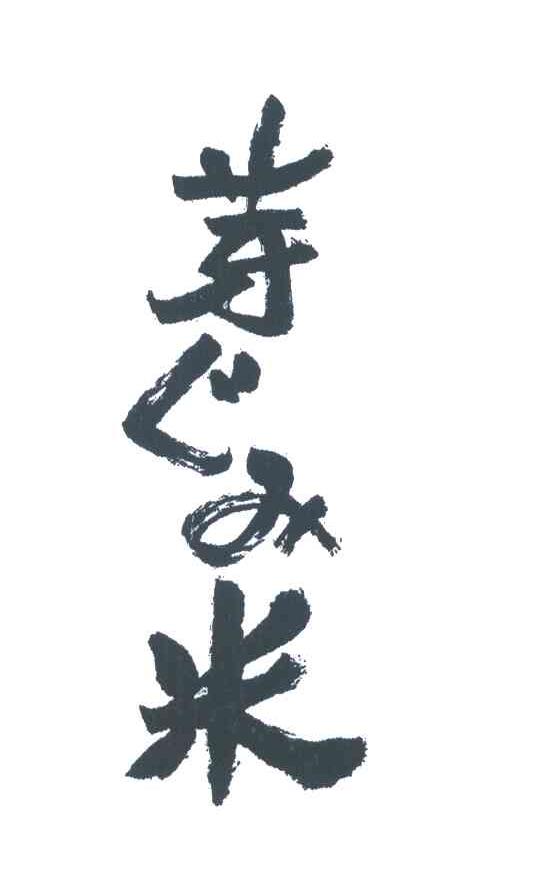 芽ぐみ米